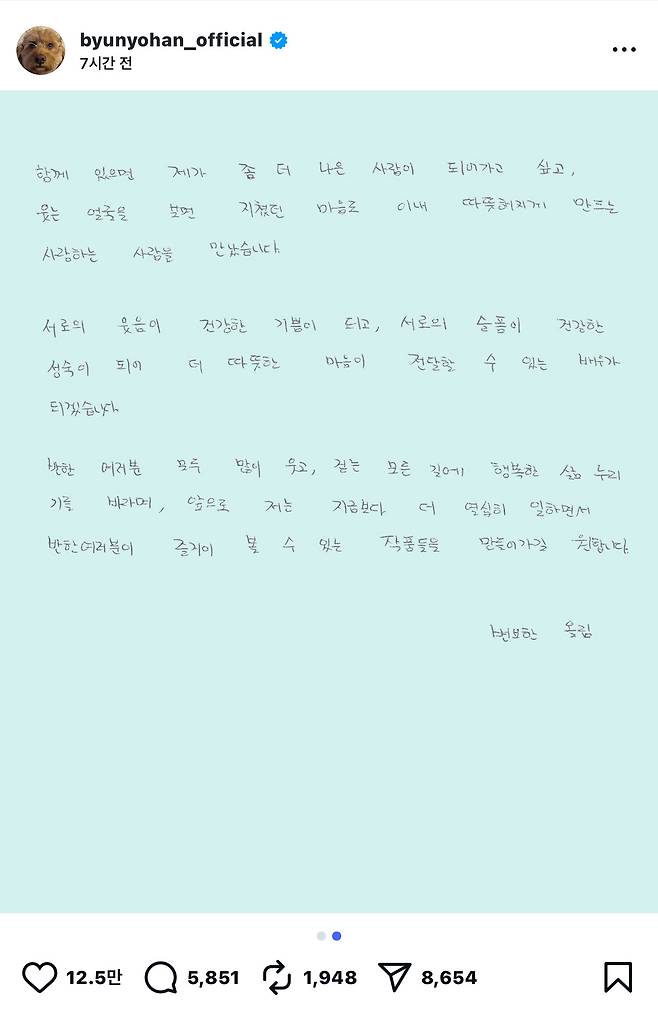 byunyohan_official
7시간 전
함께 있으면 제가 좀 더 나은 사람이 되어가고 싶고,
웃는 얼굴을 보면 지쳤던 마음도 이내 따뜻해지게 만드는
사랑하는 사람을 만났습니다.
서로의 웃음이 건강한 기쁨이 되고, 서로의 슬픔이 건강한
성숙이 되어 더 따뜻한 마음이 전달할 수 있는 배우가
되겠습니다.
변한 여러분 모두 많이 웃고, 걷는 모든 길에 행복한 삶 누리
기를 바라며, 앞으로 저는 지금보다 더 열심히 일하면서
변한여러분이 즐거이 볼 수 있는 작품들을 만들어가길 원합니다.
변요한 올림
12.5만 5,851 1,948 8,654